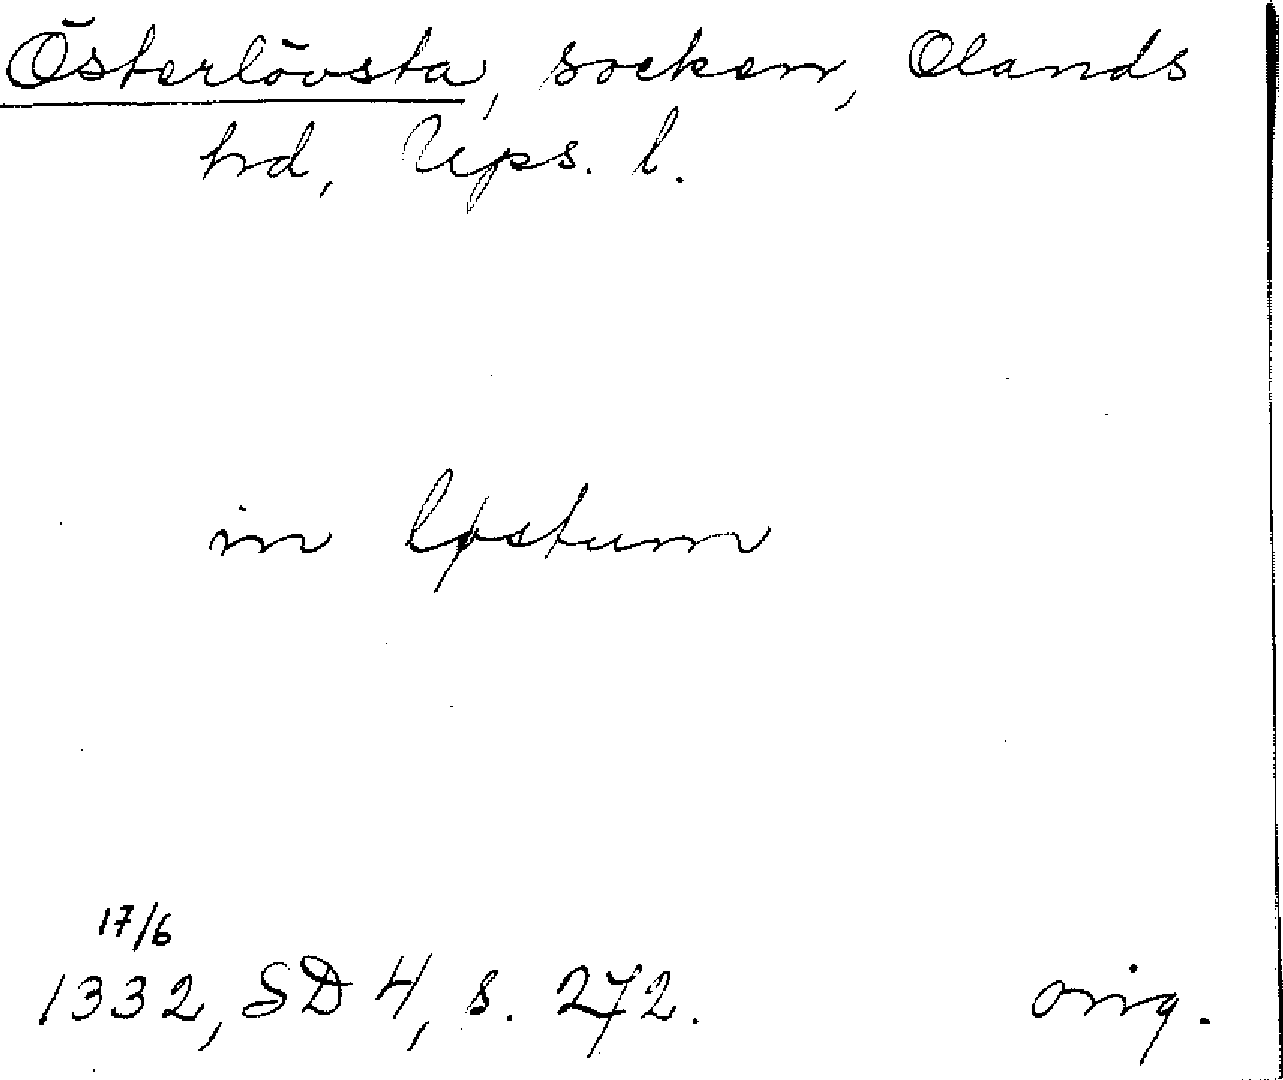 Österlövsta, socken, Olands
hd, Ups. l.
in løstum
17/6
1332, SD 4, s. 272. orig.